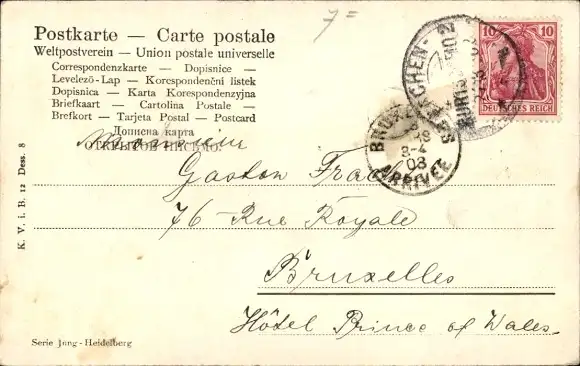 7=
Postkarte — Carte postale
Weltpostverein — Union postale universelle
Correspondenzkarte — Dopisnice —
Levelező-Lap — Korespondenční lístek
Dopisnica — Karta Korespondencyjna
Briefkaart — Cartolina Postale —
Brefkort — Tarjeta Postal — Postcard
Дописна карта
ОТКРЫТОЕ ПИСЬМО.
10 10
DEUTSCHES REICH
BRUXELLES
8-4
08
ARRIVÉE
Monsieur
Gaston
76 - Rue Royale
Bruxelles
Hôtel Prince of Wales
K. V. i. B. 12 Dess. 8
Serie Jung - Heidelberg